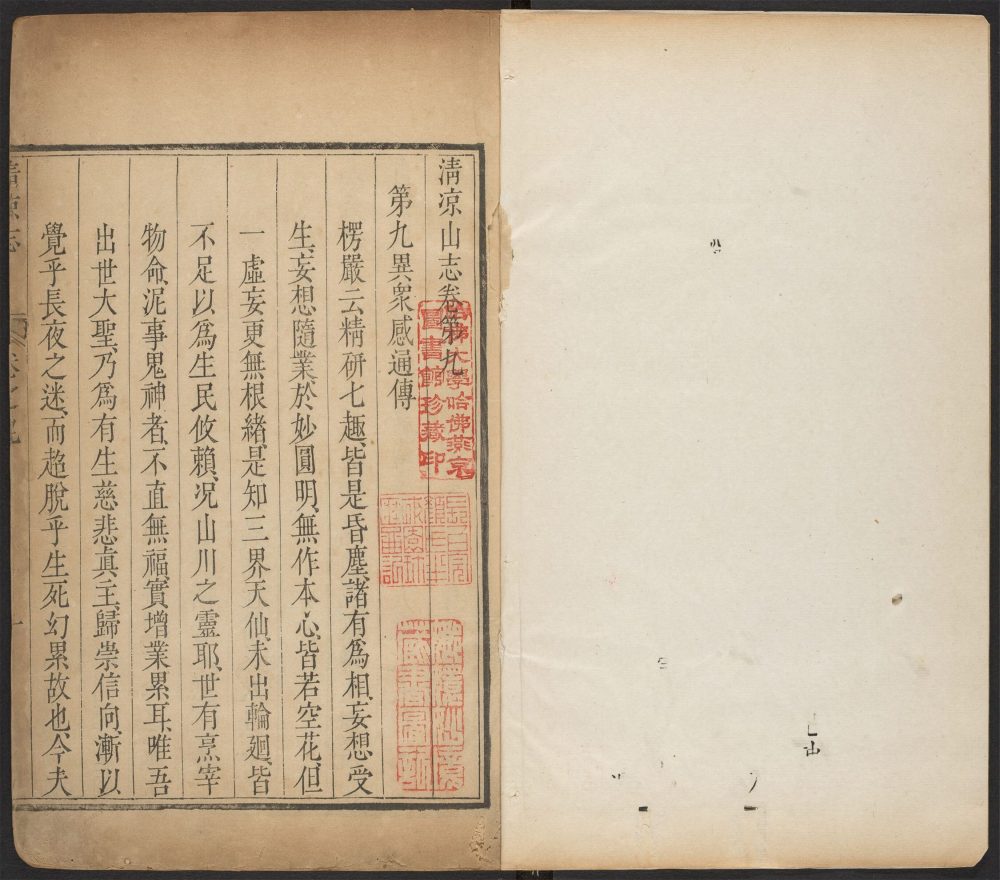 清凉山志卷第九
第九異衆感通傳
楞嚴云精硏七趣、皆是昏塵、諸有爲相、妄想受
生、妄想隨業、於妙圓明、無作本心、皆若空花、但
一虛妄、更無根緒、是知三界天仙、未出輪廻、皆
不足以爲生民攸賴、况山川之靈耶、世有烹宰
物命、泥事鬼神者、不直無福、實增業累耳、唯吾
出世大聖、乃爲有生慈悲眞主、歸崇信向、漸以
覺乎長夜之迷、而超脫乎生死幻累故也、今夫
清凉志
卷之九
一
哈佛大學哈佛燕京
圖書館珍藏印